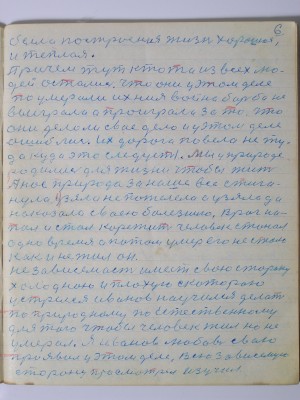 6
было построеная жизнь хорошая,
и теплая.
Причем тут кто та из всех лю-
дей остался. что они у этом деле
по умерали их ния воина борьба не
выеграла а проеграла за то. что
они делали свае дело и у этом деле
ошиблис. Их дорога повела не ту-
да куда это следует. Мы у природе
родилис для жизни чтобы жит
Яное природа за наше все стига-
нула. Узяла не пожелела а узяла да
наказала сваею болезнию, Враг на-
пал и стал коретит человек стонал
одно время а потом умер его не стало
как и не жил он.
независемаст имеет свою сторону
холодною и плохую скоторою
устрелся иванов научился делат
по природному по естественному
для того чтобы человек жил но не
умерал. Я иванов любов сваю
проявил у этом деле, Всю зависемую
сторону просмотрел изучил